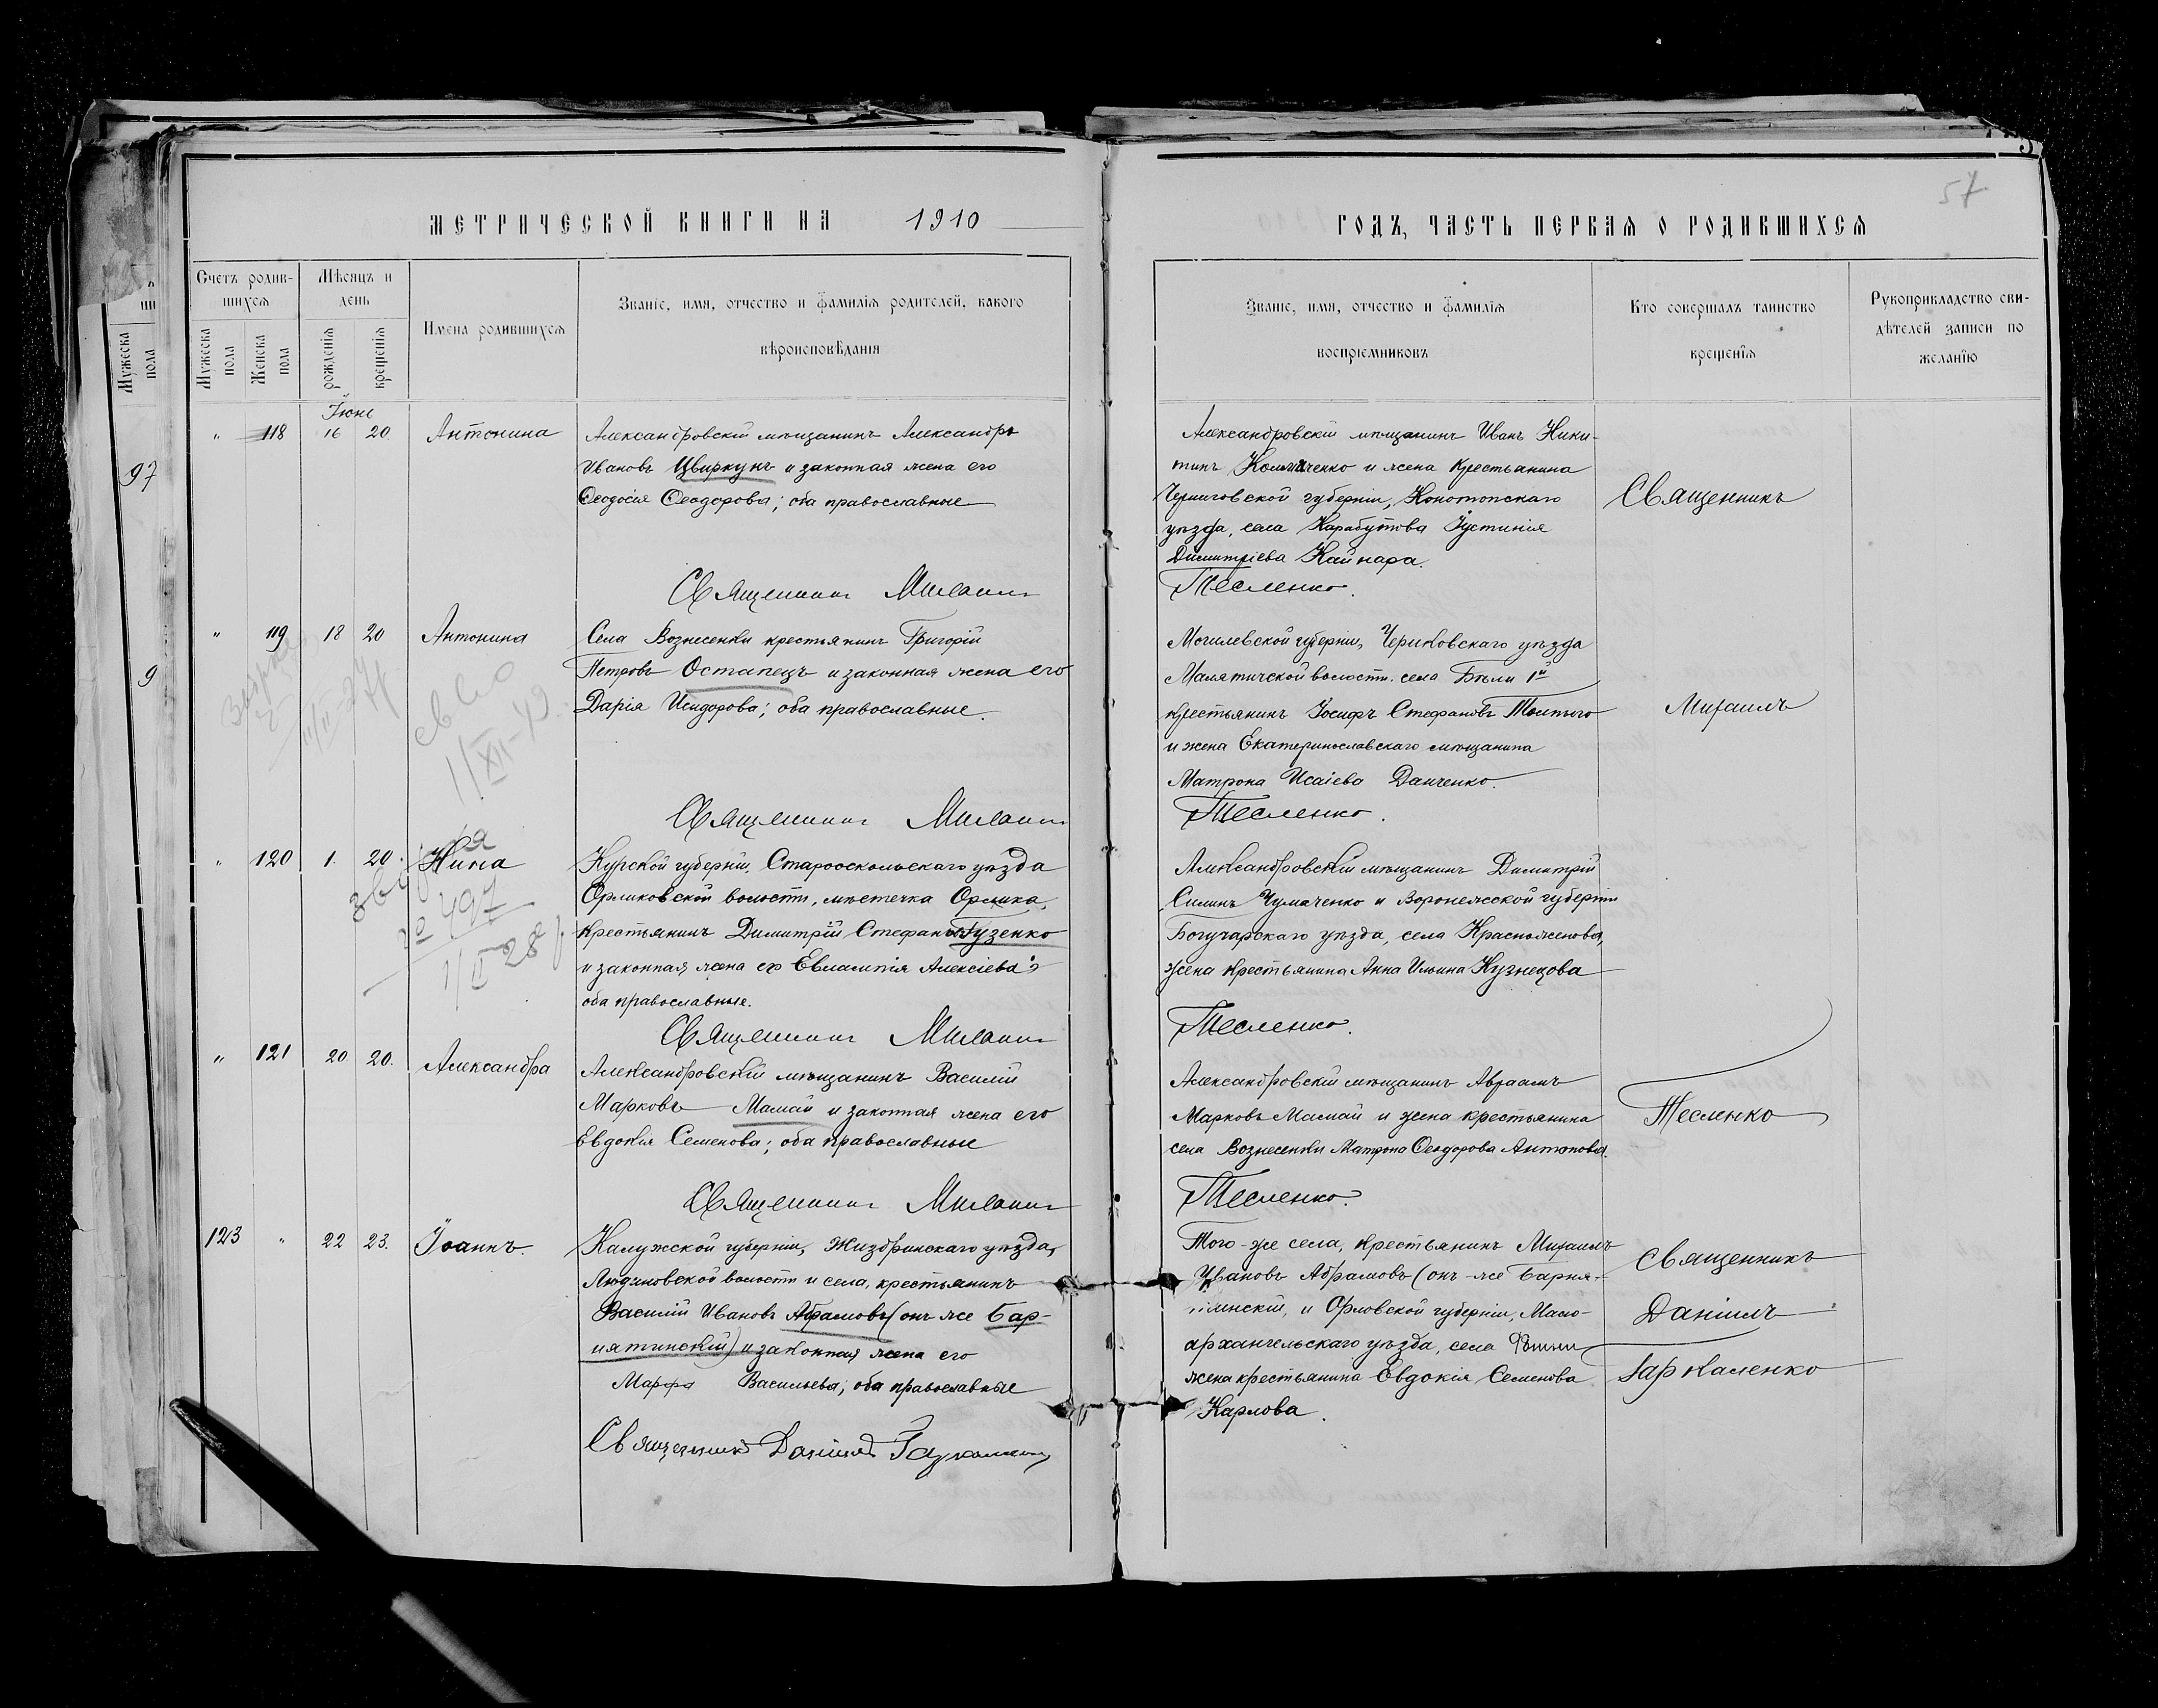 МЕТРИЧЕСКОЙ КНИГИ НА 1910
Счетъ родив-
шихся
Мѣсяцъ и
день
Имена родившихся
Званіе, имя, отчество и фамилія родителей, какого
вѣроисповѣданія
Мужеска
пола
Мужеска
пола
Женска
пола
рожденія
крещенія
97
9
Іюнь
" 118 16 20 Антонина
Александровскій мѣщанинъ Александръ
Ивановъ Цвиркунъ и законная жена его
Ѳеодосія Ѳеодорова; оба православные
Священникъ Михаилъ
" 119 18 20 Антонина
Села Вознесенки крестьянинъ Григорій
Петровъ Остапецъ и законная жена его
Дарія Исидорова; оба православные.
Священникъ Михаилъ
" 120 1. 20. Нина
497
Курской губерніи, Старооскольскаго уѣзда
Орликовской волости, мѣстечка Орлика,
крестьянинъ Димитрій Стефановъ Гузенко
и законная жена его Евлампія Алексіева;
оба православные.
Священникъ Михаилъ
" 121 20. 20. Александра
Александровскій мѣщанинъ Василій
Марковъ Мамай и законная жена его
Евдокія Семенова; оба православные
Священникъ Михаилъ
123 " 22 23. Іоаннъ.
Калужской губерніи, Жиздринскаго уѣзда,
Людиновской волости и села, крестьянинъ
Василій Ивановъ Абрамовъ (онъ же Бар-
иятинскій) и законная жена его
Марфа Васильева; оба православные
Священникъ Даніилъ Гаркаленко
57
ГОДЪ, ЧАСТЬ ПЕРВАЯ О РОДИВШИХСЯ
Званіе, имя, отчество и фамилія
воспріемниковъ
Кто совершалъ таинство
крещенія
Рукоприкладство сви-
дѣтелей записи по
желанію
Александровскій мѣщанинъ Иванъ Ники-
тинъ и жена крестьянина
Черниговской губерніи, Конотопскаго
уѣзда, села Карабутова Іустинія
Димитріева Кайнара.
Тесленко.
Священникъ
Могилевской губерніи, Чериковскаго уѣзда
Малятичской волости. села Бѣли 1й
крестьянинъ Іосифъ Стефановъ
и жена Екатеринославскаго мѣщанина
Матрона Исаіева Данченко.
Тесленко.
Михаилъ
Александровскій мѣщанинъ Димитрій
Силинъ Чумаченко и Воронежской губерніи
Богучарскаго уѣзда, села Красноженова,
жена крестьянина Анна Ильина Кузнецова
Тесленко.
Александровскій мѣщанинъ Авраамъ
Марковъ Мамай и жена крестьянина
села Вознесенки Матрона Ѳеодорова Антонова.
Тесленко.
Тесленко
Того-же села, крестьянинъ Михаилъ
Ивановъ Абрамовъ (онъ-же Барня-
тинскій, и Орловской губерніи, Мало-
архангельскаго уѣзда, села
жена крестьянина Евдокія Семенова
Карлова.
Священникъ
Даніилъ
Гаркаленко